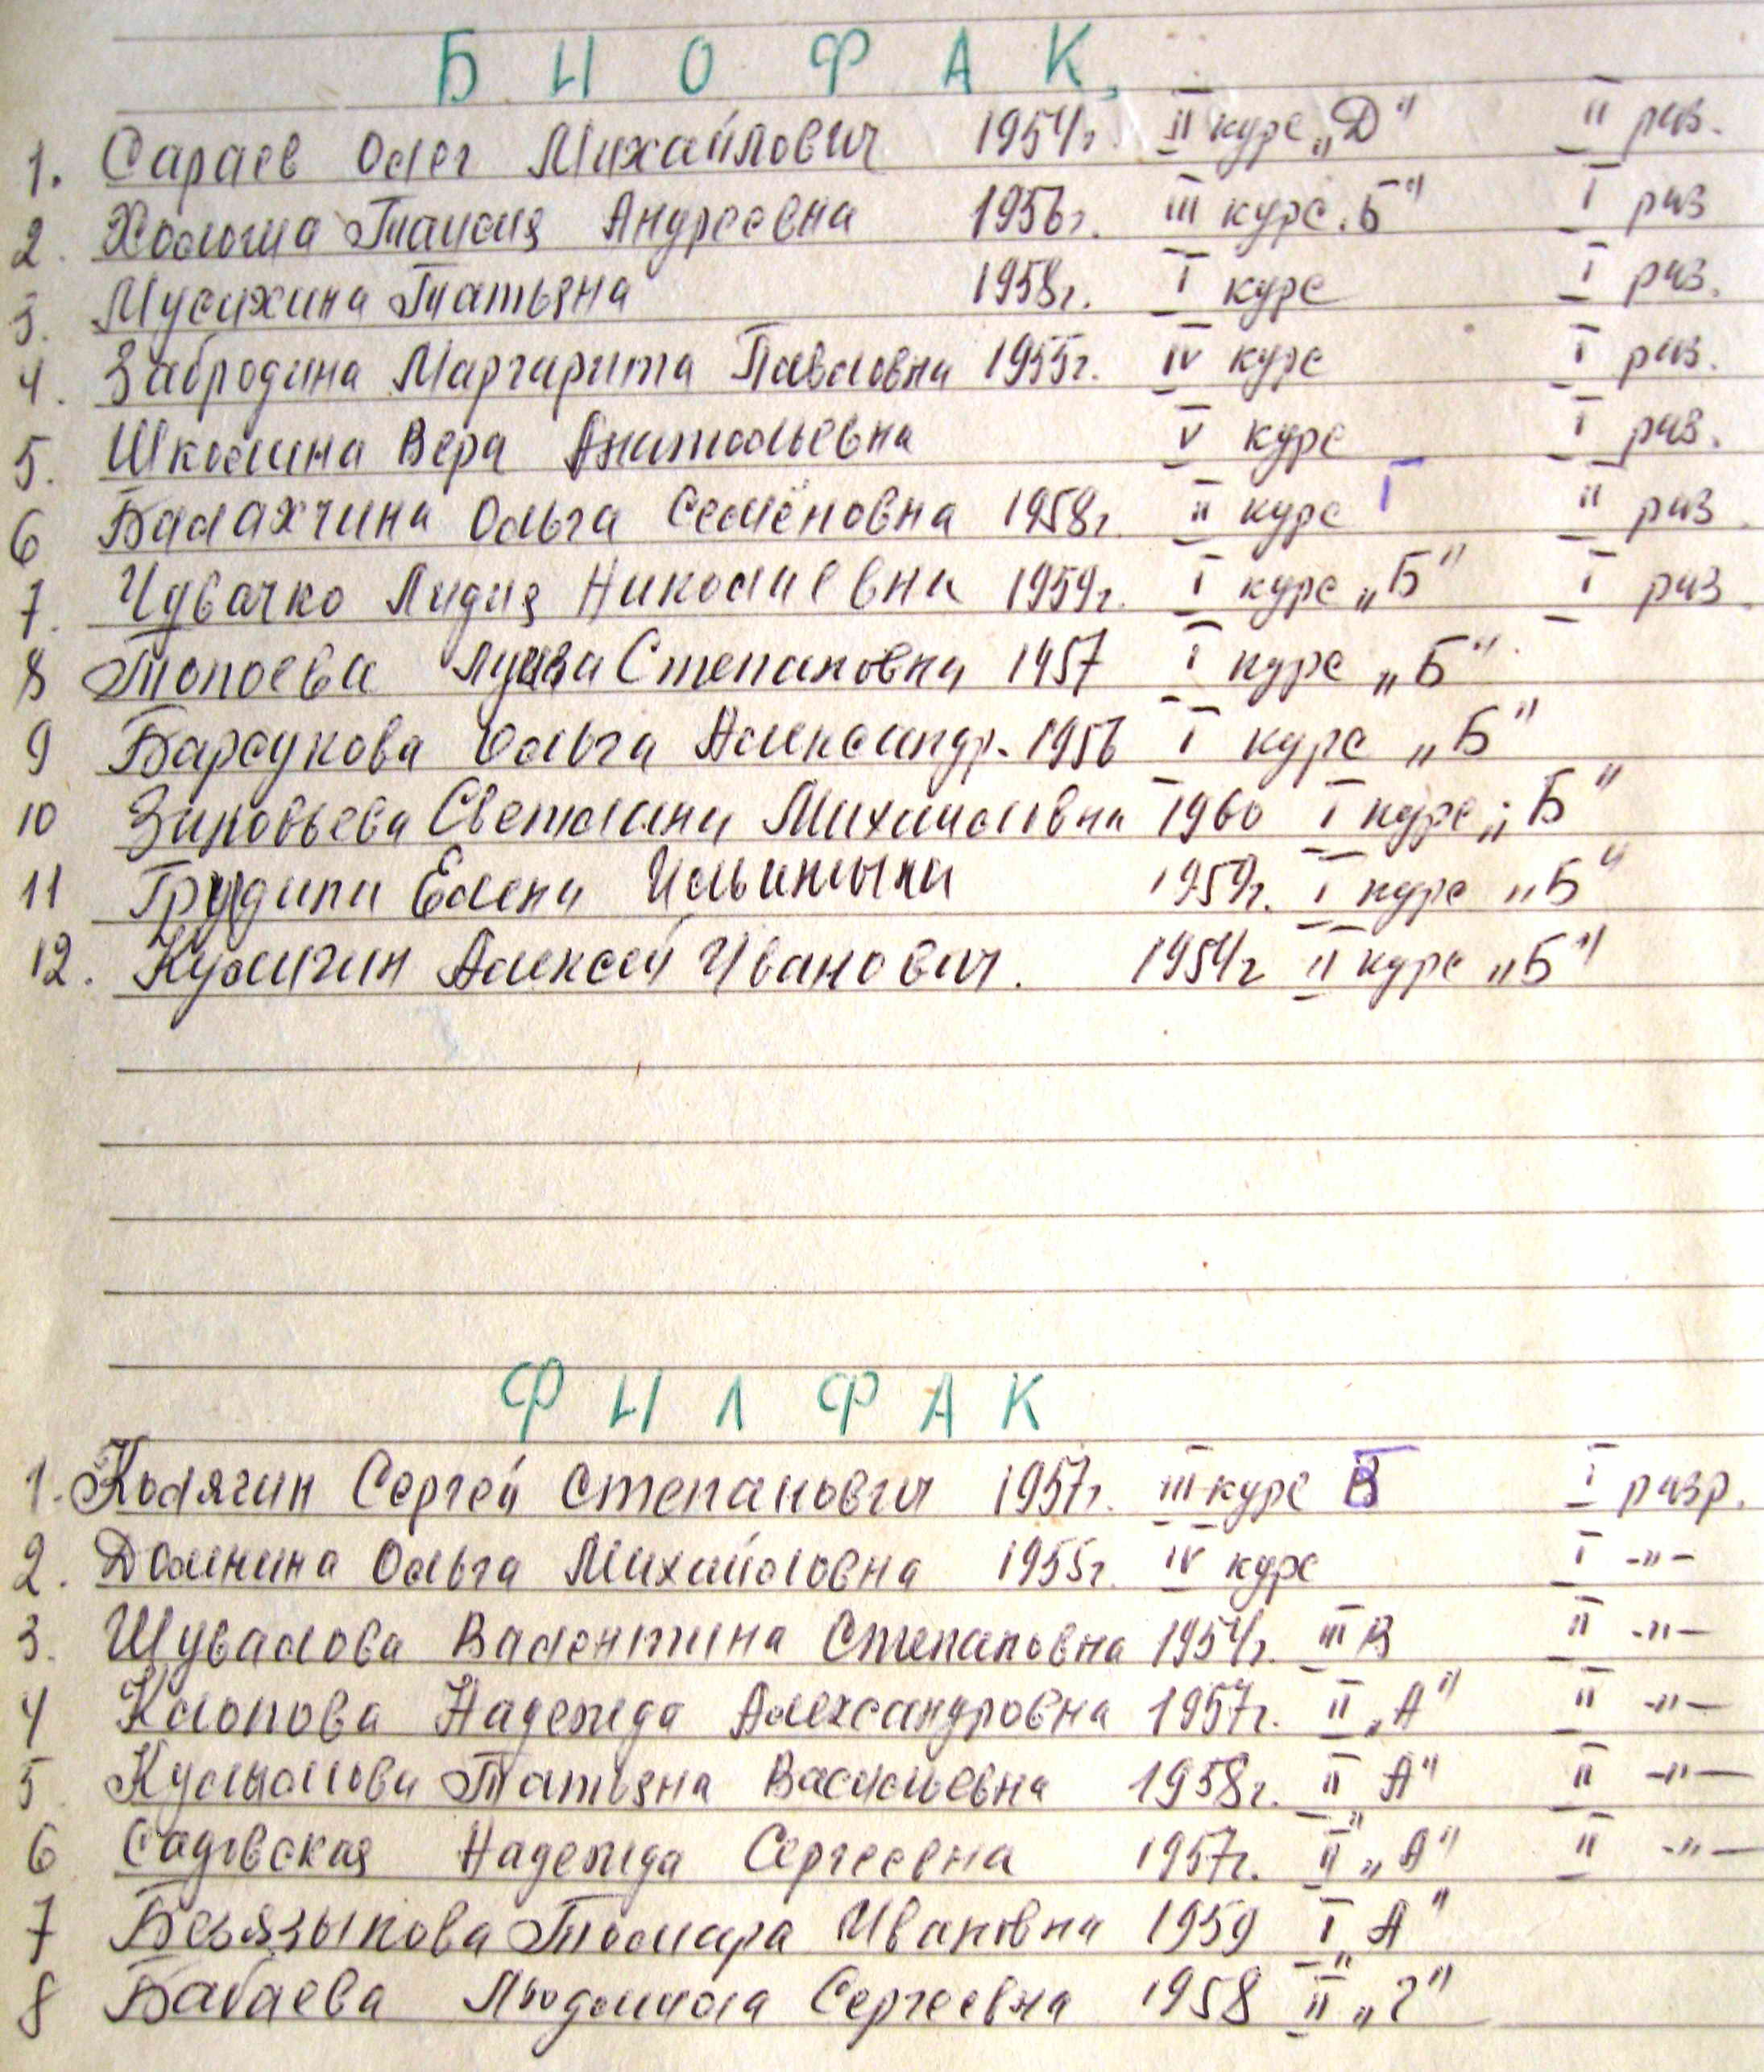 БИОФАК.
1. Сараев Олег Михайлович 1954г. II курс „Д" II раз.
2. Таисия Андреевна 1956г. III курс „Б" I раз
3. Мусихина Татьяна 1958г. I курс I раз.
4. Забродина Маргарита Павловна 1955г. IV курс I раз.
5. Школина Вера Анатольевна V курс I раз.
6 Балахчина Ольга Семёновна 1958г. II курс Г II раз.
7. Чувачко Лидия Николаевна 1959г. I курс „Б" I раз.
8 Топоева Луиза Степановна 1957 I курс „Б"
9 Барсукова Ольга Александр. 1956 I курс „Б"
10 Зиновьева Светлана Михайловна 1960 I курс „Б"
11 Елена Ильинична 1959г. I курс „Б"
12. Кулигин Алексей Иванович. 1954г II курс „Б"
ФИЛФАК
1. Колягин Сергей Степанович 1957г. III курс Б I разр.
2. Долинина Ольга Михайловна 1955г. IV курс I -"-
3. Шувалова Валентина Степановна 1954г. III В II -"-
4 Клопова Надежда Александровна 1957г. II „А" II -"-
5 Татьяна Васильевна 1958г. II А" II -"-
6 Садовская Надежда Сергеевна 1957г. II „А" II -"-
7 Безъязыкова Тамара Ивановна 1959 I А"
8 Бабаева Людмила Сергеевна 1958 II „Г"